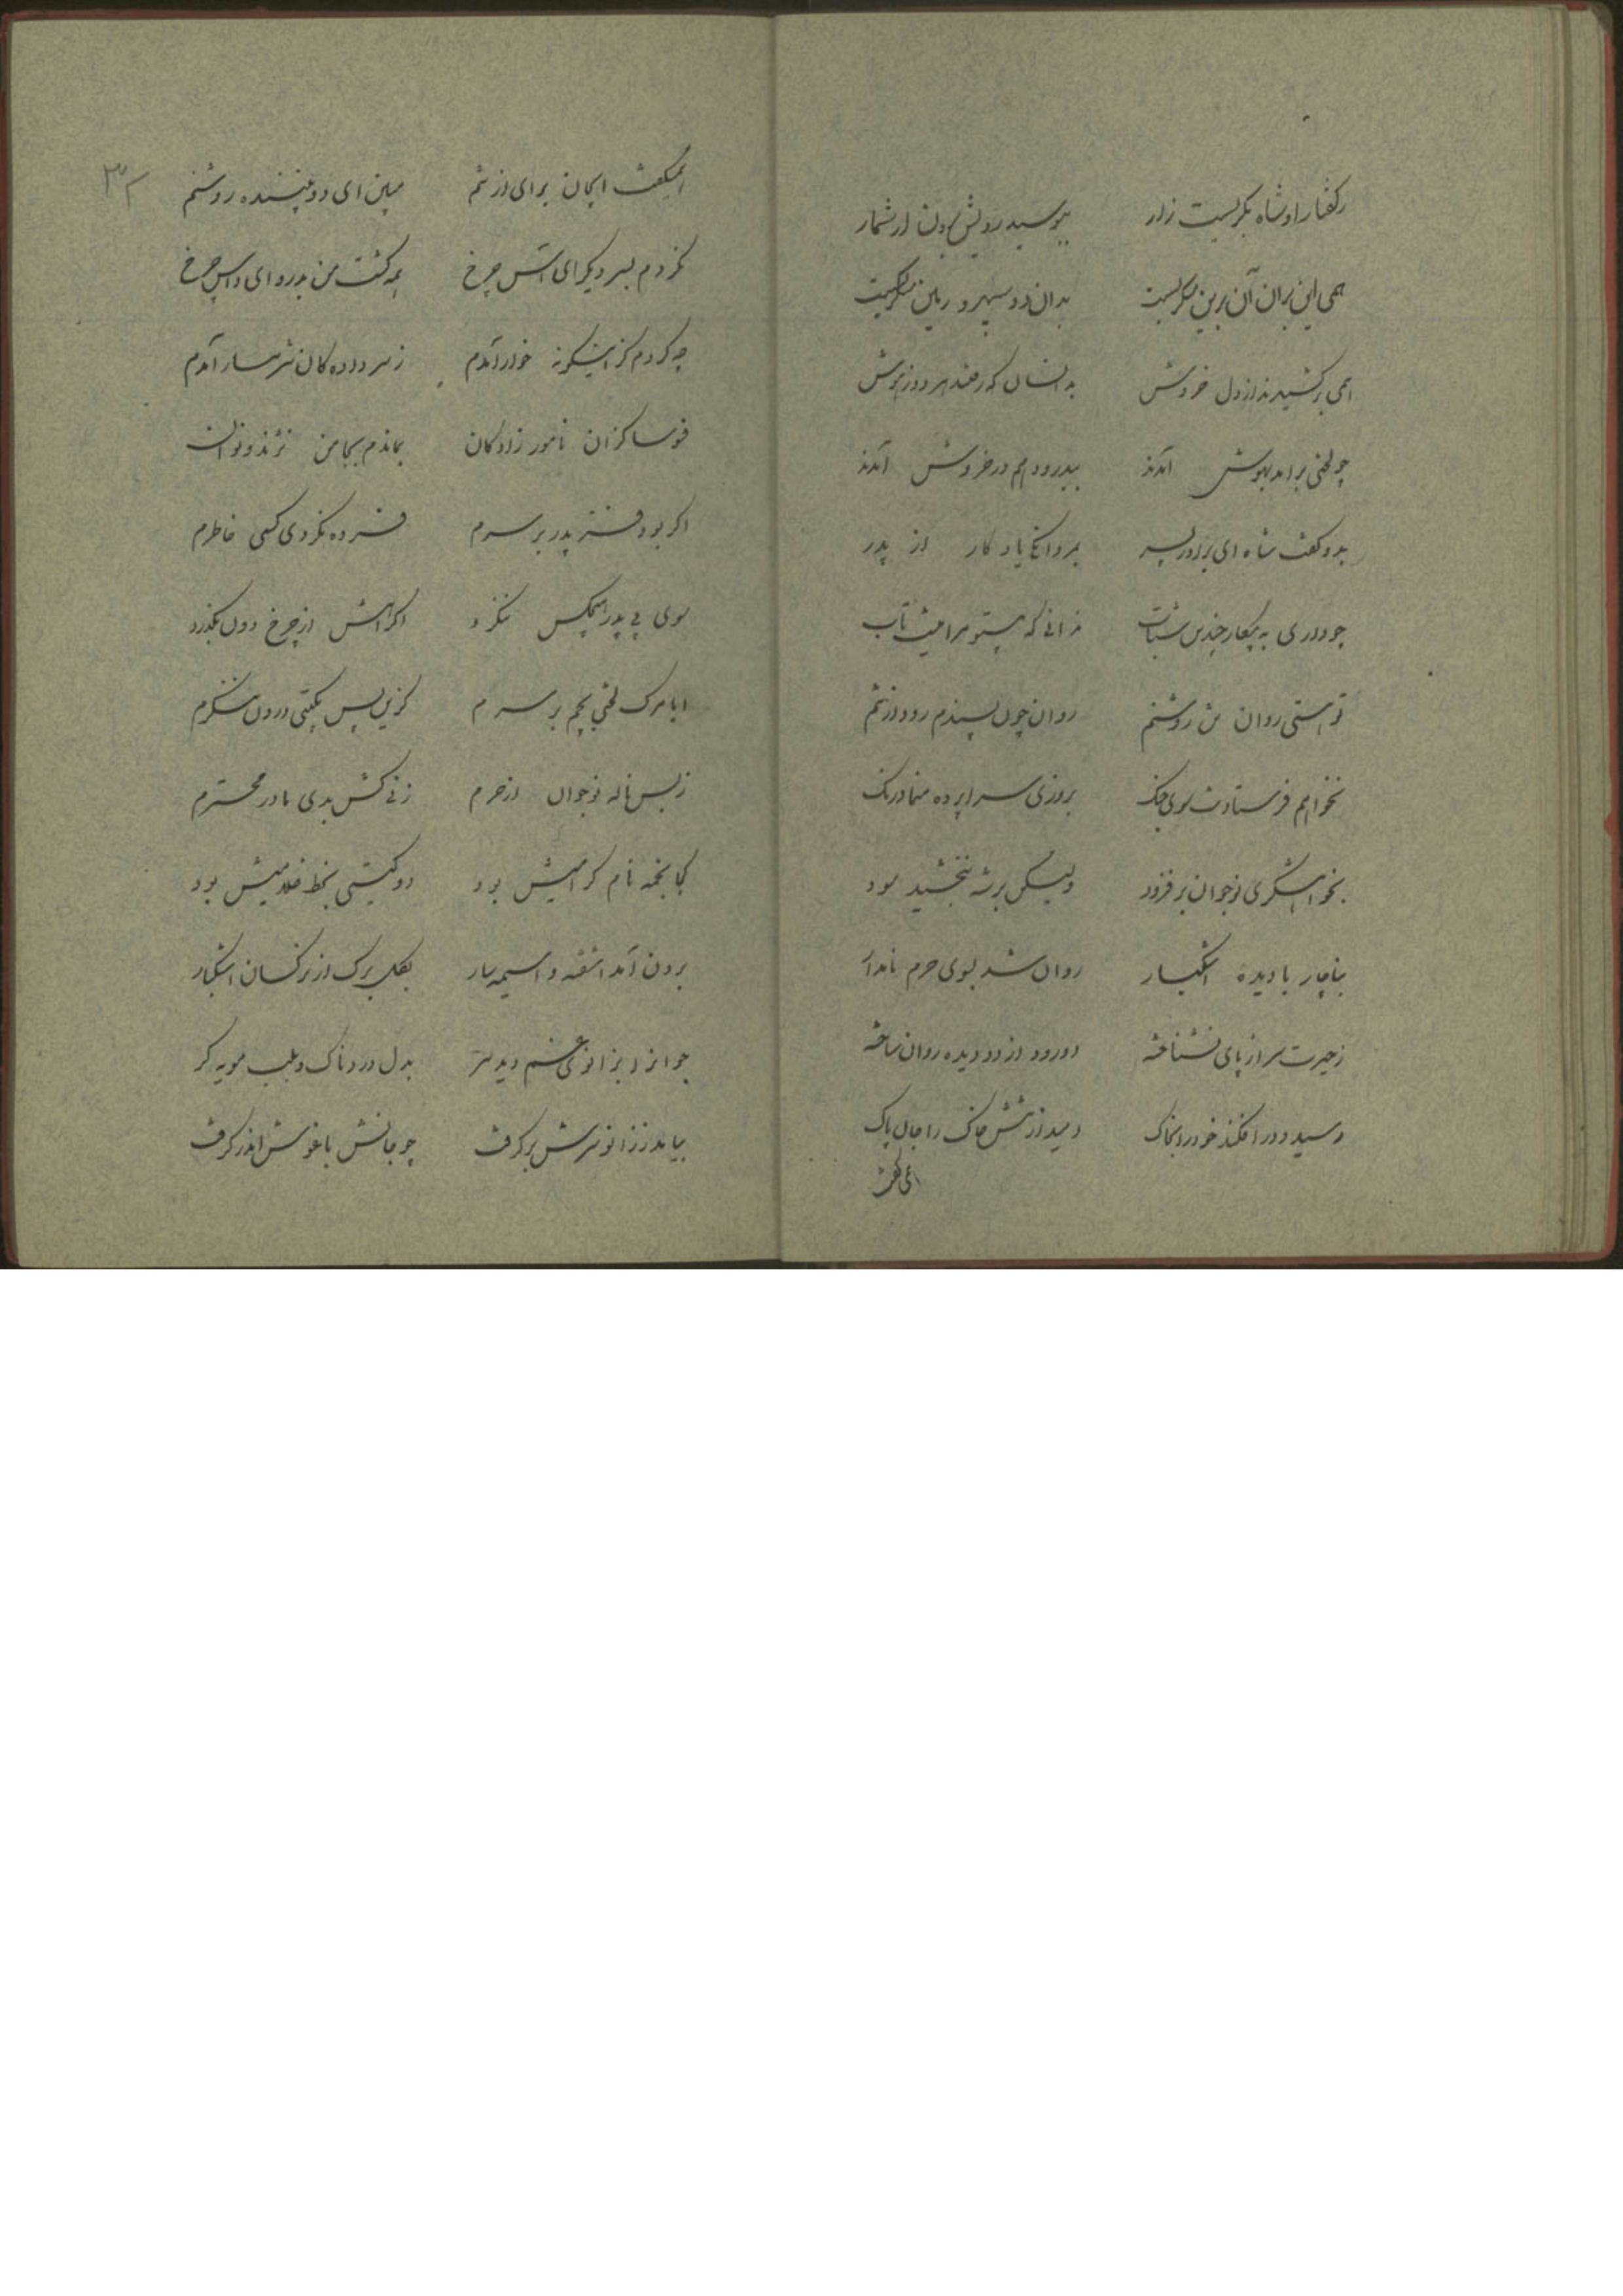 ز گفتار او شاه بگریست زار ببوسید رویش برون از شمار
همی این بران آن برین میگریست بدان دو سپهر و زمین میگریست
همی برکشیدند از دل خروش بدانسان که رفتند هر دو ز هوش
چو لختی برآمد بهوش آمدند بپدرود هم در خروش آمدند
بدو گفت شاه ای برادر پسر مرا یادگار از پدر
چو داری به پیکار چندین شتاب ندانی که نیستو مرا هیچ تاب
تو هستی روان من روشنم روان چون پسندم رود از تنم
نخواهم فرستادنت سوی جنگ بروزی سراپرده منما درنگ
بخواهشگری نوجوان برفزود ولیکن برشه نبخشید سود
بناچار با دیده اشکبار روان شد بسوی حرم نامدار
ز حیرت سر از پای نشناخته دو رود از دو دیده روان ساخته
رسید و در افکند خود را بخاک دمید از تنش خاک را جان پاک
همی گفت
همیگفت ایجان برای از تنم مبین ای دو بیننده روشنم
نکردم بسر دیگر ای آتش چرخ همه کشت من بدرو ای داس چرخ
چه کردم کز اینگونه خوار آمدم ز سردادگان شرمسار آمدم
فسوسا کزان نامور زادگان بماندم بجا من نژند و نوان
اگر بود فر پدر بر سرم فسرده نکردی کسی خاطرم
سوی بی پدر هیچکس ننگرد اگر آهش از چرخ دون بگذرد
ایا مرگ لختی بچم بر سرم کزین پس بگیتی درون ننگرم
ز بس ناله نوجوان از حرم زنی کش بدی مادر محترم
کجا نجمه نام گرامیش بود دو گیتی بخط غلامیش بود
برون آمد آشفته و آسیمه سار بگلبرگ از نرگسان اشکبار
جوانرا بزانوی غم دید سر بدل دردناک و بلب مویه گر
بیامد ز زانو سرش برگرفت چو جانش باغوش اندر گرفت